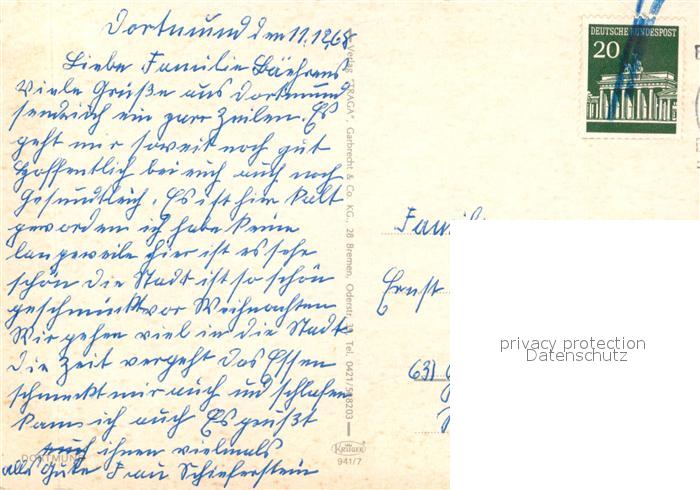 Dortmund den 11.12.68
Liebe Familie Bährens
Viele Grüße aus Dortmund
sendeich ein paar Zeilen. Es
geht mir soweit noch gut
Hoffentlich bei euch auch noch
Gesundlich. Es ist hier kalt
geworden ich habe keine
langeweile hier ist es sehr
schön die Stadt ist so schön
geschmückt vor Weihnachten
Wir gehen viel in die Stadt
die Zeit vergeht das Essen
schmeckt mir auch und schlafen
kann ich auch Es grüßt
auch ihnen vielmals
alles Gute Frau Schieferstein
DORTMUND
Verlag "TRAGA" Garbrecht & Co. KG., 28 Bremen, Oderstr. Tel. 0421/508203
KRÜGER
941/7
DEUTSCHE BUNDESPOST
20
Famili
Ernst
631
privacy protection
Datenschutz